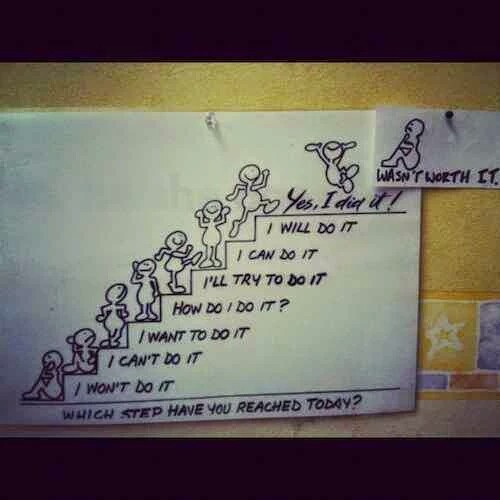 WASN'T WORTH IT.
Yes, I did it!
I WILL DO IT
I CAN DO IT
I'LL TRY TO DO IT
HOW DO I DO IT?
I WANT TO DO IT
I CAN'T DO IT
I WON'T DO IT
WHICH STEP HAVE YOU REACHED TODAY?